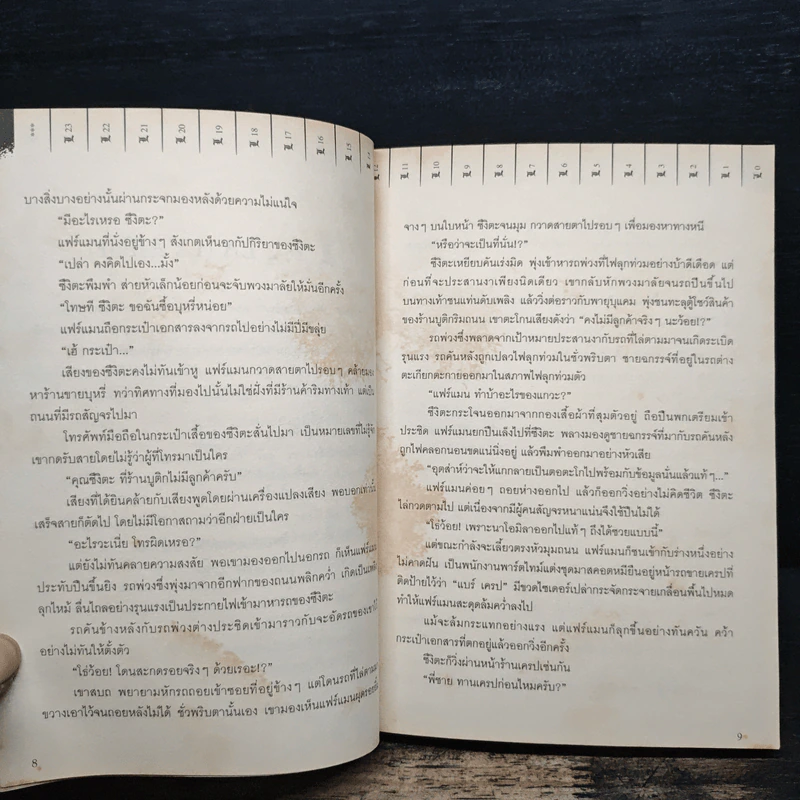 23 22 21 20 19 18 17 16 15
บางสิ่งบางอย่างนั้นผ่านกระจกมองหลังด้วยความไม่แน่ใจ
“มีอะไรเหรอ ซึงิตะ?”
แฟร์แมนที่นั่งอยู่ข้างๆ สังเกตเห็นอากัปกิริยาของซึงิตะ
“เปล่า คงคิดไปเอง...มั้ง”
ซึงิตะพึมพำ ส่ายหัวเล็กน้อยก่อนจะจับพวงมาลัยให้มั่นอีกครั้ง
“โทษที ซึงิตะ ขอฉันซื้อบุหรี่หน่อย”
แฟร์แมนถือกระเป๋าเอกสารลงจากรถไปอย่างไม่มีปี่มีขลุ่ย
“เฮ้ กระเป๋า...”
เสียงของซึงิตะคงไม่ทันเข้าหู แฟร์แมนกวาดสายตาไปรอบๆ คล้ายมอง
หาร้านขายบุหรี่ ทว่าทิศทางที่มองไปนั้นไม่ใช่ฝั่งที่มีร้านค้าริมทางเท้า แต่เป็น
ถนนที่มีรถสัญจรไปมา
โทรศัพท์มือถือในกระเป๋าเสื้อของซึงิตะสั่นไปมา เป็นหมายเลขที่ไม่รู้จัก
เขากดรับสายโดยไม่รู้ว่าผู้ที่โทรมาเป็นใคร
“คุณซึงิตะ ที่ร้านบูติกไม่มีลูกค้าครับ”
เสียงที่ได้ยินคล้ายกับเสียงพูดโดยผ่านเครื่องแปลงเสียง พอบอกเท่านั้น
เสร็จสายก็ตัดไป โดยไม่มีโอกาสถามว่าอีกฝ่ายเป็นใคร
“อะไรวะเนี่ย โทรผิดเหรอ?”
แต่ยังไม่ทันคลายความสงสัย พอเขามองออกไปนอกรถ ก็เห็นแฟร์แมน
ประทับปืนขึ้นยิง รถพ่วงซึ่งพุ่งมาจากอีกฟากของถนนพลิกคว่ำ เกิดเป็นเพลิง
ลุกไหม้ ลื่นไถลอย่างรุนแรงเป็นประกายไฟเข้ามาหารถของซึงิตะ
รถคันข้างหลังกับรถพ่วงต่างประชิดเข้ามาราวกับจะอัดรถของเขา
อย่างไม่ทันให้ตั้งตัว
“โธ่ว้อย! โดนสะกดรอยจริงๆ ด้วยเรอะ!?”
เขาสบถ พยายามหักรถถอยเข้าซอยที่อยู่ข้างๆ แต่โดนรถที่ไล่ตามมา
ขวางเอาไว้จนถอยหลังไม่ได้ ชั่วพริบตานั้นเอง เขามองเห็นแฟร์แมนผุดรอยยิ้ม
8
12 11 10 9 8 7 6 5 4 3 2 1 0
จางๆ บนใบหน้า ซึงิตะจนมุม กวาดสายตาไปรอบๆ เพื่อมองหาทางหนี
“หรือว่าจะเป็นที่นั่น!?”
ซึงิตะเหยียบคันเร่งมิด พุ่งเข้าหารถพ่วงที่ไฟลุกท่วมอย่างบ้าดีเดือด แต่
ก่อนที่จะประสานงาเพียงนิดเดียว เขากลับหักพวงมาลัยจนรถปีนขึ้นไป
บนทางเท้าชนแท่นดับเพลิง แล้ววิ่งต่อราวกับพายุบุแคม พุ่งชนทะลุตู้โชว์สินค้า
ของร้านบูติกริมถนน เขาตะโกนเสียงดังว่า “คงไม่มีลูกค้าจริงๆ นะว้อย!?”
รถพ่วงซึ่งพลาดจากเป้าหมายประสานงากับรถที่ไล่ตามมาจนเกิดระเบิด
รุนแรง รถคันหลังถูกเปลวไฟลุกท่วมในชั่วพริบตา ชายฉกรรจ์ที่อยู่ในรถต่าง
ตะเกียกตะกายออกมาในสภาพไฟลุกท่วมตัว
“แฟร์แมน ทำบ้าอะไรของแกวะ?”
ซึงิตะกระโจนออกมาจากกองเสื้อผ้าที่สุมตัวอยู่ ถือปืนพกเตรียมเข้า
ประชิด แฟร์แมนยกปืนเล็งไปที่ซึงิตะ พลางมองดูชายฉกรรจ์ที่มากับรถคันหลัง
ถูกไฟคลอกนอนขดแน่นิ่งอยู่ แล้วพึมพำออกมาอย่างหัวเสีย
“อุตส่าห์ว่าจะให้แกกลายเป็นตอตะโกไปพร้อมกับข้อมูลนั่นแล้วแท้ๆ...”
แฟร์แมนค่อยๆ ถอยห่างออกไป แล้วก็ออกวิ่งอย่างไม่คิดชีวิต ซึงิตะ
ไล่กวดตามไป แต่เนื่องจากมีผู้คนสัญจรหนาแน่นจึงใช้ปืนไม่ได้
“โธ่ว้อย! เพราะนาโอมิลาออกไปแท้ๆ ถึงได้ซวยแบบนี้”
แต่ขณะกำลังจะเลี้ยวตรงหัวมุมถนน แฟร์แมนก็ชนเข้ากับร่างหนึ่งอย่าง
ไม่คาดฝัน เป็นพนักงานพาร์ตไทม์แต่งชุดมาสคอตหมียืนอยู่หน้ารถขายเครปที่
ติดป้ายไว้ว่า “แบร์ เครป” มีขวดไซเดอร์เปล่ากระจัดกระจายเกลื่อนพื้นไปหมด
ทำให้แฟร์แมนสะดุดล้มคว่ำลงไป
แม้จะล้มกระแทกอย่างแรง แต่แฟร์แมนก็ลุกขึ้นอย่างทันควัน คว้า
กระเป๋าเอกสารที่ตกอยู่แล้วออกวิ่งอีกครั้ง
ซึงิตะก็วิ่งผ่านหน้าร้านเครปเช่นกัน
“พี่ชาย ทานเครปก่อนไหมครับ?”
9